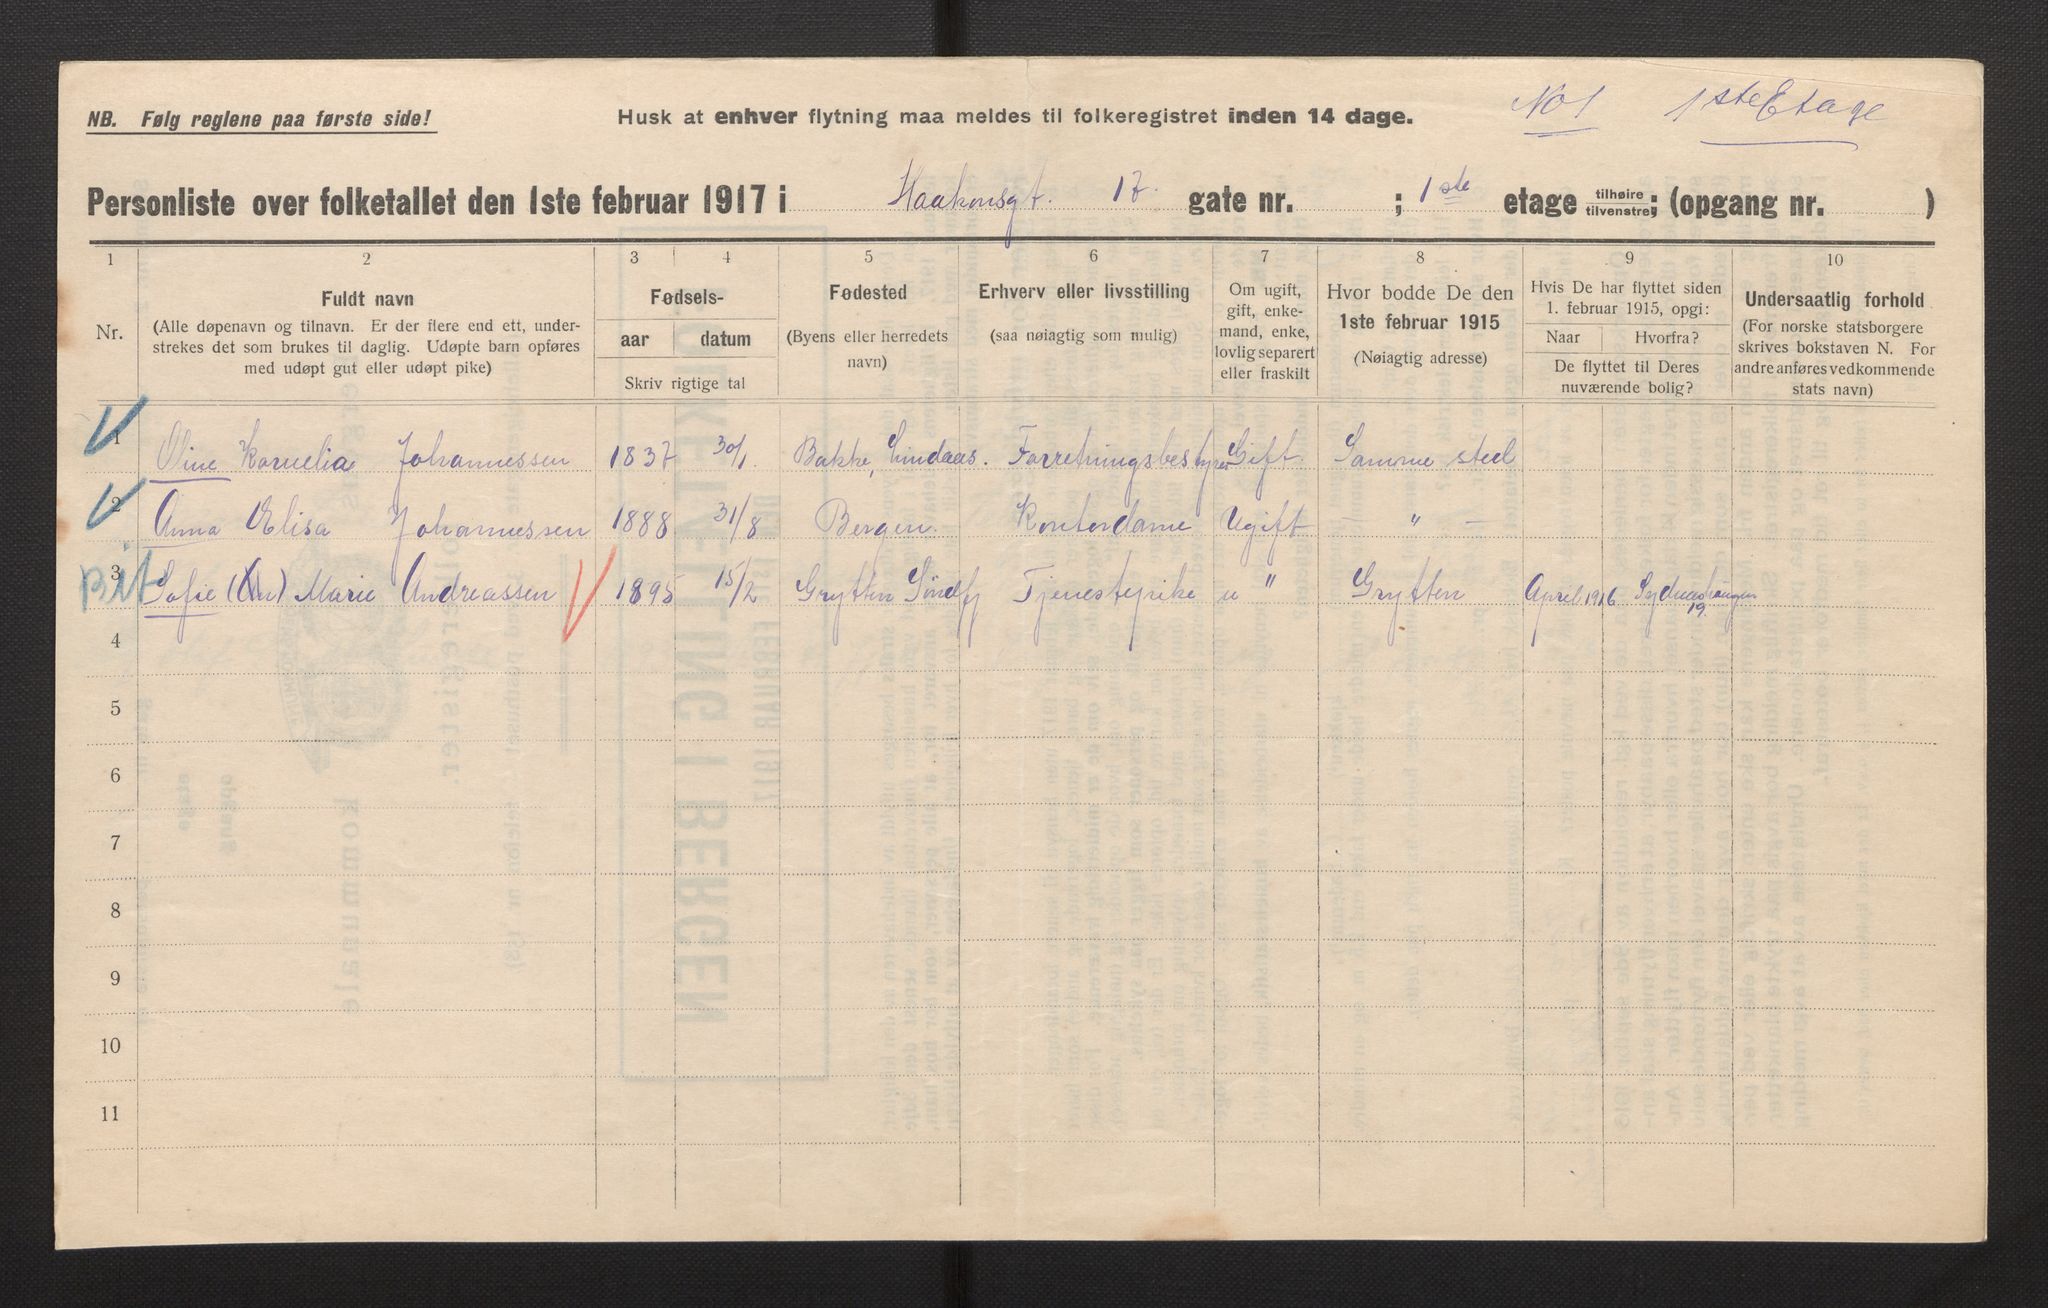 NB. Følg reglene paa første side!
Husk at enhver flytning maa meldes til folkeregistret inden 14 dage.
No 1 1ste Etage
Personliste over folketallet den 1ste februar 1917 i Haakonsgt. 17. gate nr. ; 1ste etage tilhøire tilvenstre; (opgang nr. )
1 2 3 4 5 6 7 8 9 10
Nr.
Fuldt navn
(Alle døpenavn og tilnavn. Er der flere end ett, under-
strekes det som brukes til daglig. Udøpte barn opføres
med udøpt gut eller udøpt pike)
Fødsels-
aar datum
Skriv rigtige tal
Fødested
(Byens eller herredets
navn)
Erhverv eller livsstilling
(saa nøiagtig som mulig)
Om ugift,
gift, enke-
mand, enke,
lovlig separert
eller fraskilt
Hvor bodde De den
1ste februar 1915
(Nøiagtig adresse)
Hvis De har flyttet siden
1. februar 1915, opgi:
Naar Hvorfra?
De flyttet til Deres
nuværende bolig?
Undersaatlig forhold
(For norske statsborgere
skrives bokstaven N. For
andre anføres vedkommende
stats navn)
1 Oline Kornelia Johannessen 1837 30/1. Bakke, Lindaas. Forretningsbestyrer Gift. Samme sted
2 Anna Elisa Johannessen 1888 31/8 Bergen. Kontordame Ugift — " —
3 Sofie Marie Andreassen 1895 15/2 Grytten Søndfj Tjenestepike u " Grytten April 1916 19.
4
5
6
7
8
9
10
11
FOLKETÆLLING I BERGEN
DEN 1STE FEBRUAR 1917